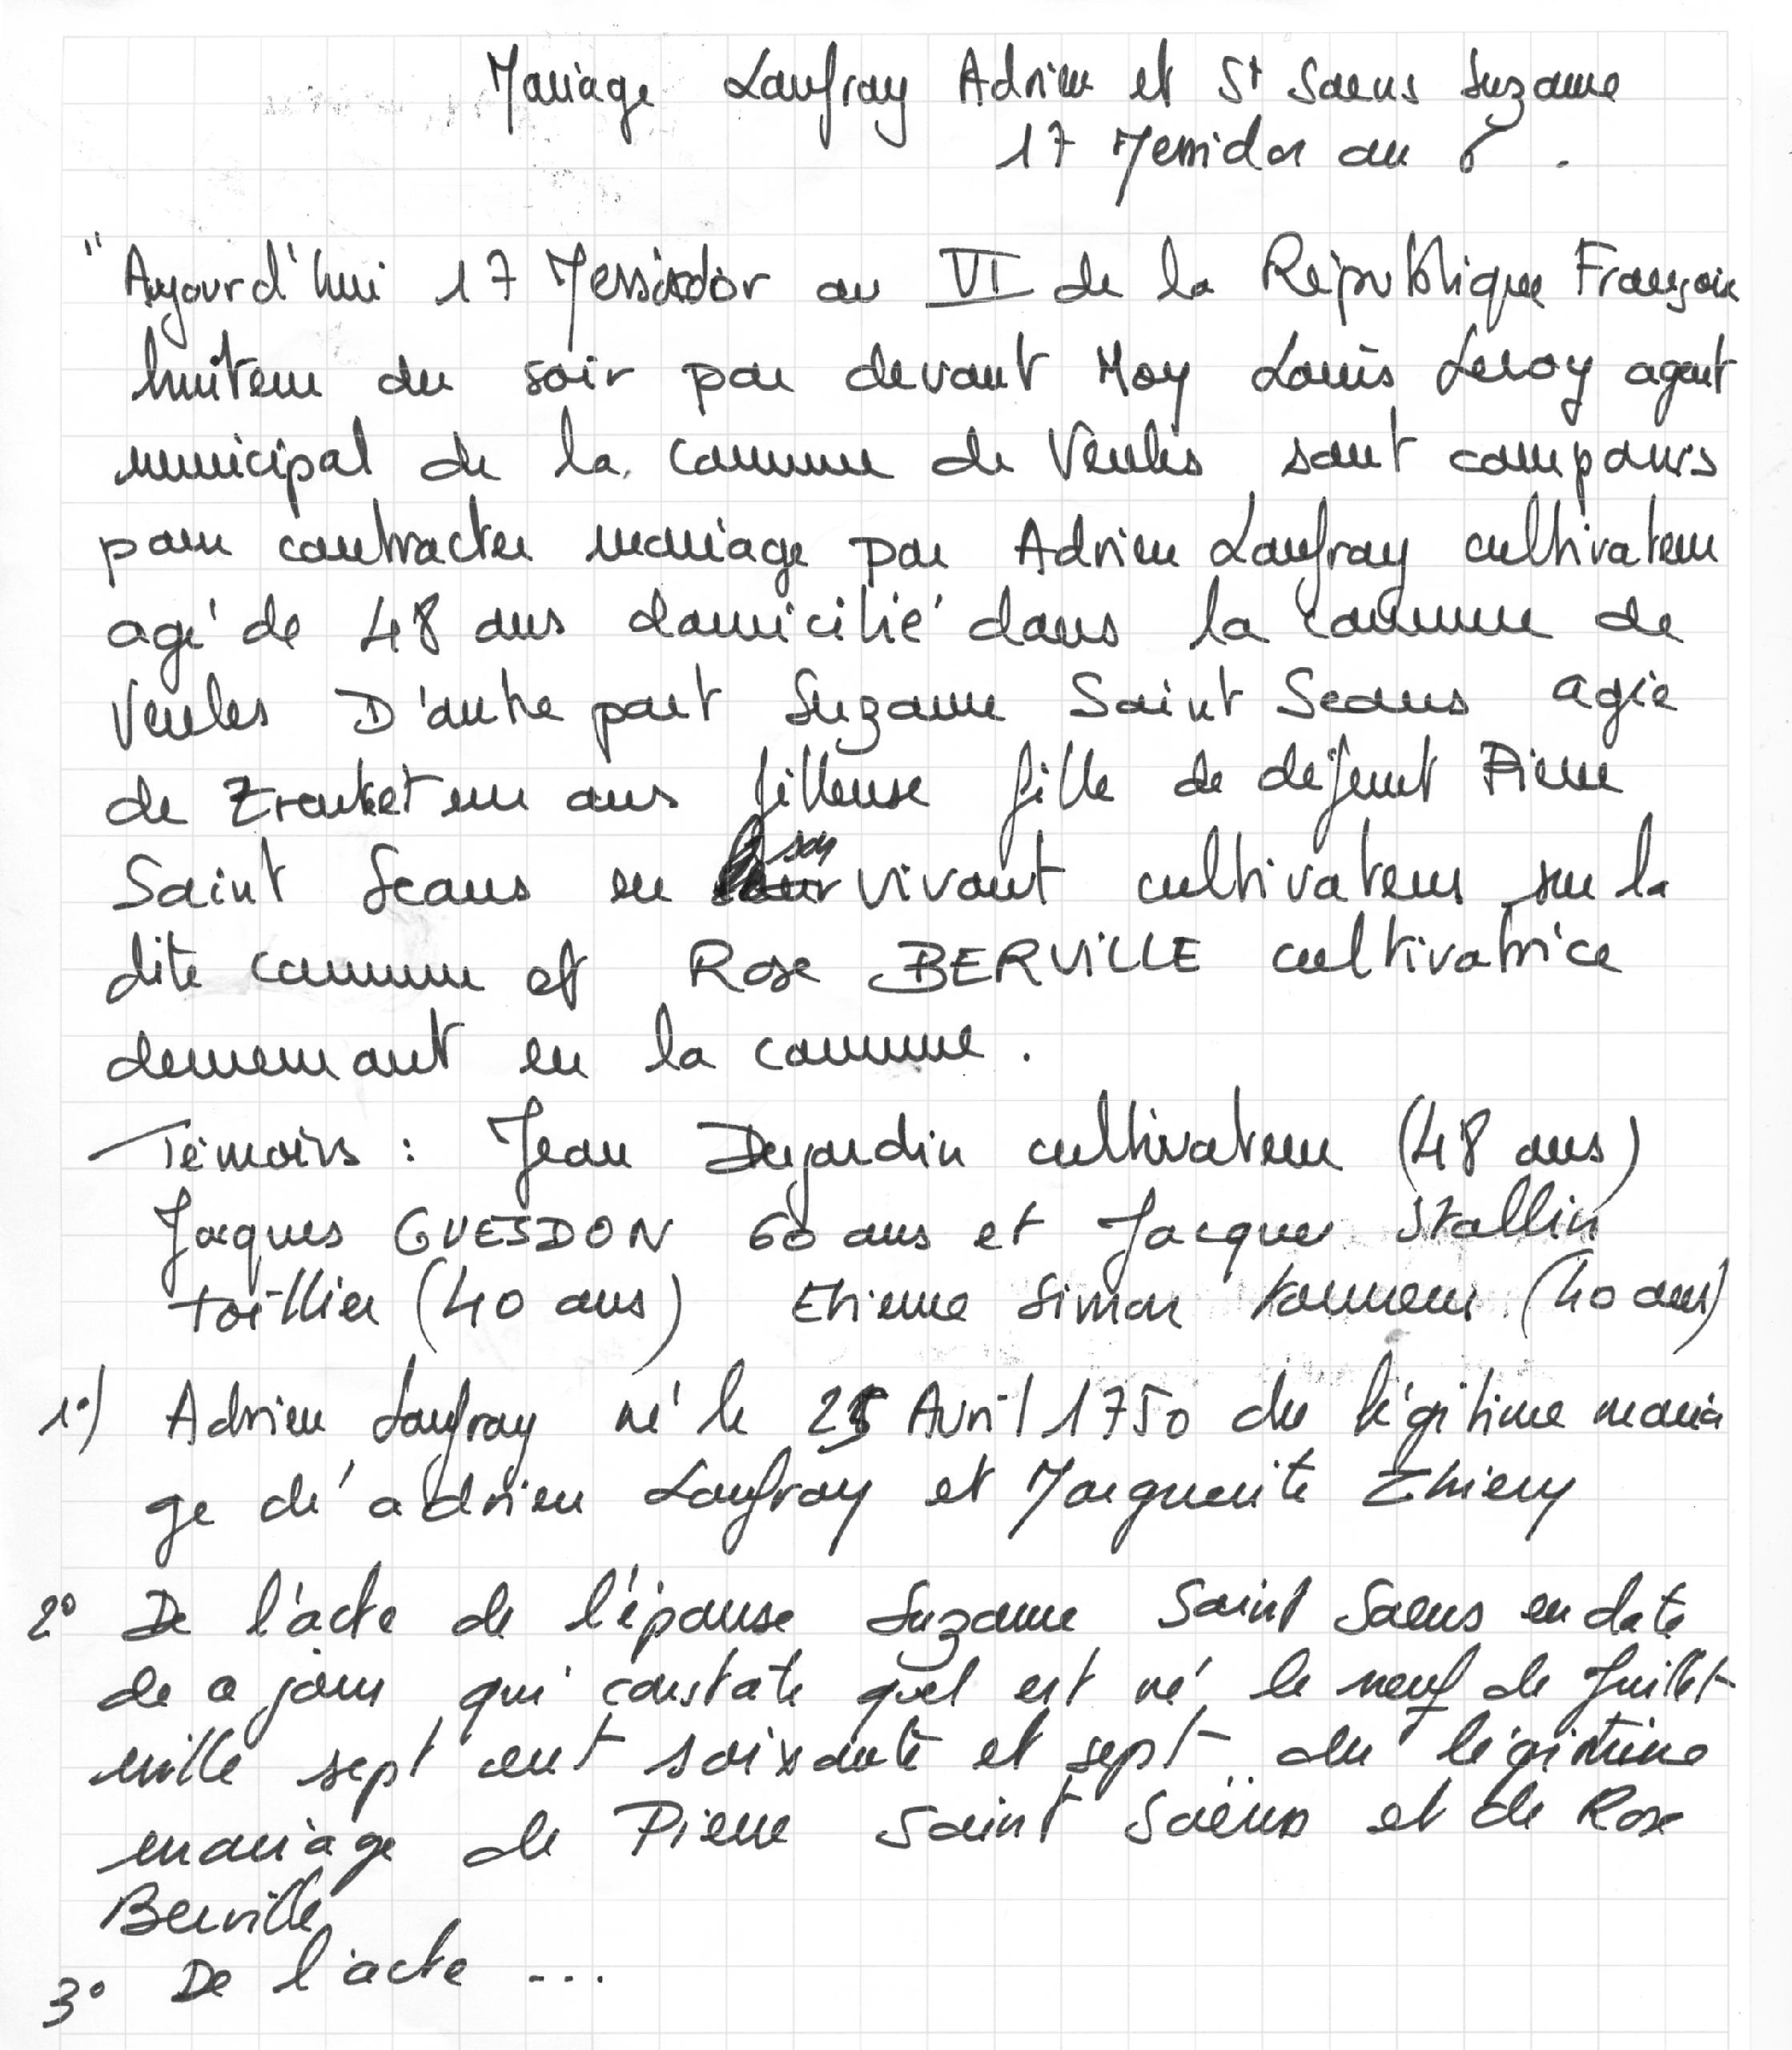 Mariage Lanfray Adrien et St Saens Suzanne
17 Messidor an 6.
"Aujourd'hui 17 Messidor an VI de la République Françoise
huiteme du soir par devant Moy Louis Leroy agent
municipal de la commune de Veules sont comparus
pour contracter mariage par Adrien Lanfray cultivateur
agé de 48 ans domicilié dans la commune de
Veules D'autre part Suzanne Saint Seans agée
de Trenteteun ans filleuse fille de defunt Pierre
Saint Seans en son vivant cultivateur sur la
dite commune et Rose BERVILLE cultivatrice
demeurant en la commune.
Témoins : Jean Dujardin cultivateur (48 ans)
Jacques GUESDON 60 ans et Jacques Stallin
toillier (40 ans) Etienne Simon (40 ans)
1°) Adrien Lanfray né le 25 Avril 1750 du légitime maria
ge dé adrien Lanfray et Marguerite Thiery
2° De l'acte de l'épouse Suzanne Saint Saens en date
de ce jour qui constate quel est né le neuf de Juillet
mille sept cent soixante et sept du légitime
mariage de Pierre Saint Saëns et de Rose
Berville
3° De l'acte ...